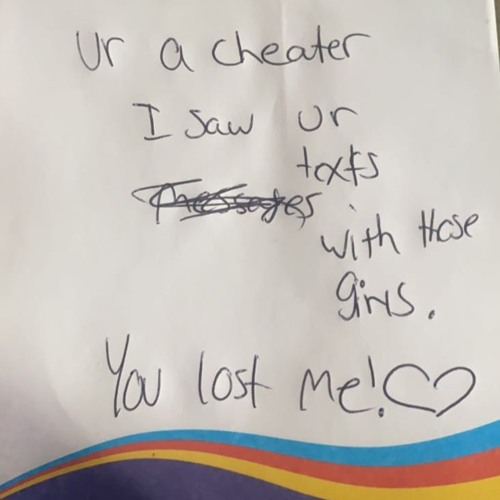 Ur a cheater
I saw ur
texts
messages
with those
girls.
You lost me!♡